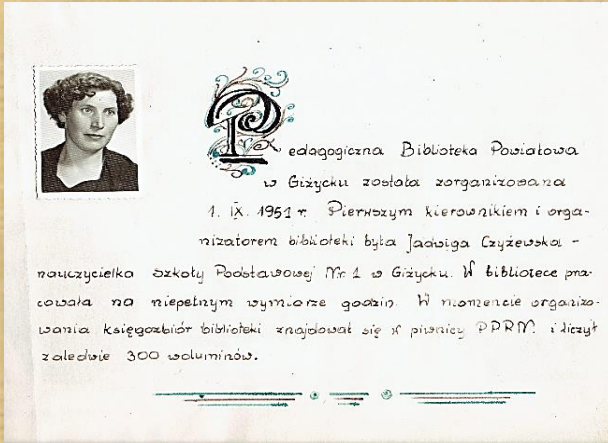 Pedagogiczna Biblioteka Powiatowa
w Giżycku została zorganizowana
1. IX. 1951 r. Pierwszym kierownikiem i orga-
nizatorem biblioteki była Jadwiga Czyżewska -
nauczycielka Szkoły Podstawowej Nr 1 w Giżycku. W bibliotece pra-
cowała na niepełnym wymiarze godzin. W momencie organizo-
wania księgozbiór biblioteki znajdował się w piwnicy PPRN. i liczył
zaledwie 300 woluminów.